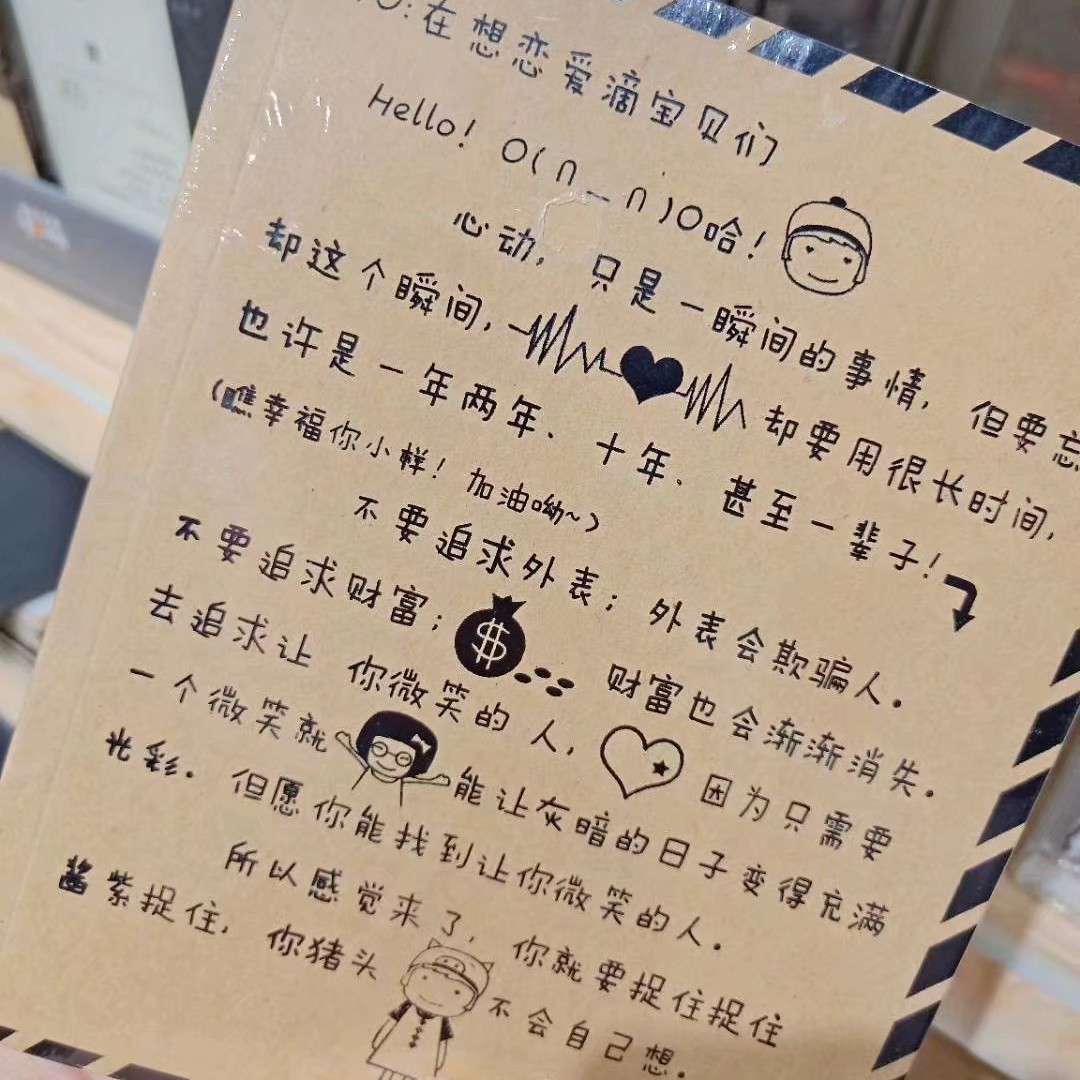 O:在想恋爱滴宝贝们
Hello! O(∩_∩)O哈!
心动,只是一瞬间的事情,但要忘
却这个瞬间,却要用很长时间,
也许是一年两年、十年、甚至一辈子!
(瞧幸福你小样!加油呦~)
不要追求外表;外表会欺骗人。
不要追求财富;$财富也会渐渐消失。
去追求让 你微笑的人,因为只需要
一个微笑就能让灰暗的日子变得充满
光彩。但愿你能找到让你微笑的人。
所以感觉来了,你就要捉住捉住
酱紫捉住,你猪头不会自己想。